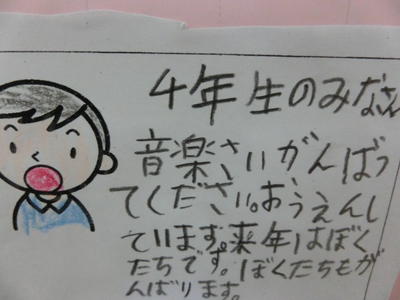 4年生のみなさん
音楽さいがんばっ
てください。おうえんし
ています。来年はぼく
たちです。ぼくたちもが
んばります。